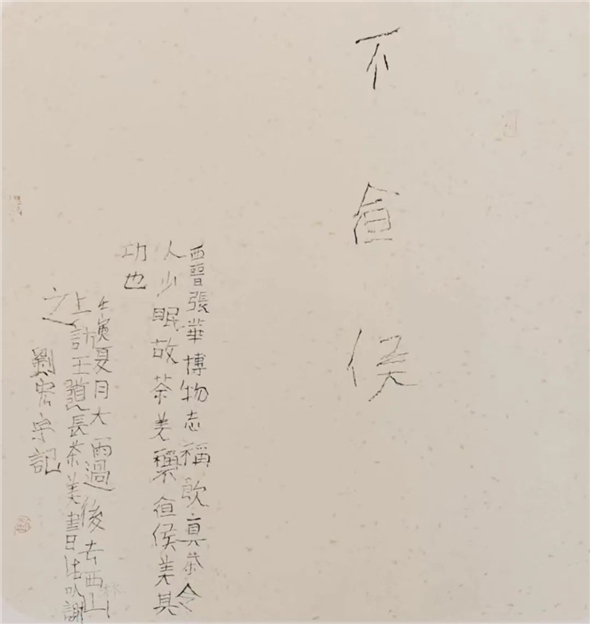 不亱侯
西晉張華博物志稱飲真茶令
人少眠故茶美稱亱侯美其
功也
壬寅夏月大雨過後去西山
上計王道長茶美書以謝
之
劉宏記